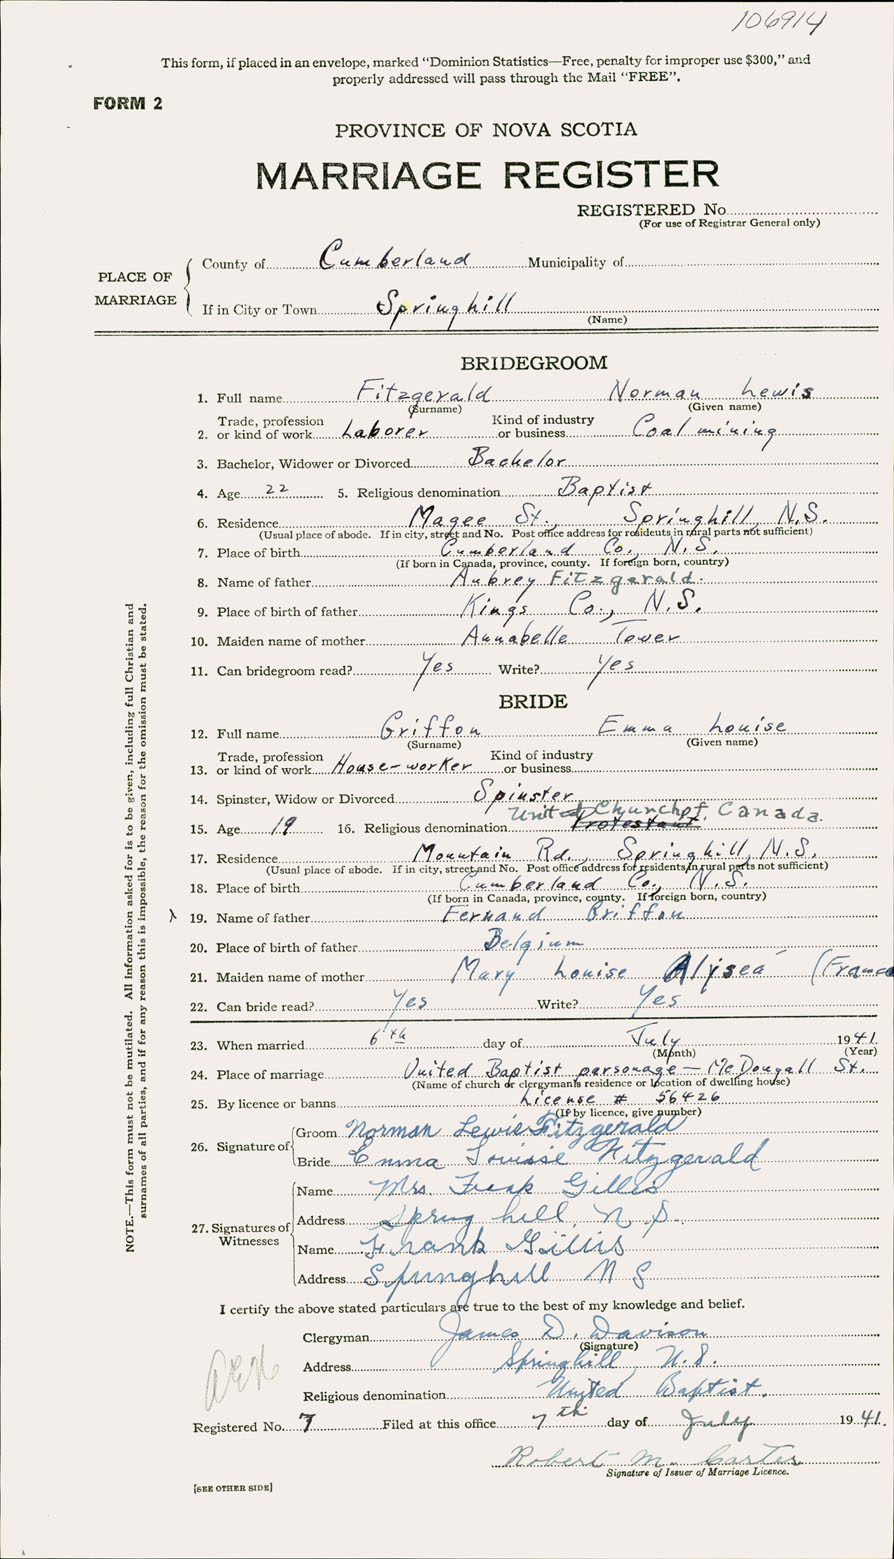 106914
This form, if placed in an envelope, marked "Dominion Statistics—Free, penalty for improper use $300," and
properly addressed will pass through the Mail "FREE".
FORM 2
PROVINCE OF NOVA SCOTIA
MARRIAGE REGISTER
REGISTERED No.
(For use of Registrar General only)
PLACE OF MARRIAGE
County of Cumberland Municipality of
If in City or Town Springhill
(Name)
BRIDEGROOM
1. Full name Fitzgerald Norman Lewis
(Surname) (Given name)
2. Trade, profession or kind of work Laborer Kind of industry or business Coal mining
3. Bachelor, Widower or Divorced Bachelor
4. Age 22 5. Religious denomination Baptist
6. Residence Magee St., Springhill, N.S.
(Usual place of abode. If in city, street and No. Post office address for residents in rural parts not sufficient)
7. Place of birth Cumberland Co., N.S.
(If born in Canada, province, county. If foreign born, country)
8. Name of father Aubrey Fitzgerald.
9. Place of birth of father Kings Co., N.S.
10. Maiden name of mother Annabelle Tower
11. Can bridegroom read? Yes Write? Yes
BRIDE
12. Full name Griffon Emma Louise
(Surname) (Given name)
13. Trade, profession or kind of work House-worker Kind of industry or business
14. Spinster, Widow or Divorced Spinster
15. Age 19 16. Religious denomination Protestant United Church of Canada.
17. Residence Mountain Rd., Springhill, N.S.
(Usual place of abode. If in city, street and No. Post office address for residents in rural parts not sufficient)
18. Place of birth Cumberland Co., N.S.
(If born in Canada, province, county. If foreign born, country)
19. Name of father Fernand Griffon
20. Place of birth of father Belgium
21. Maiden name of mother Mary Louise Alysea (France
22. Can bride read? Yes Write? Yes
23. When married 6th day of July 1941
(Month) (Year)
24. Place of marriage United Baptist parsonage — McDougall St.
(Name of church or clergyman's residence or location of dwelling house)
25. By licence or banns License # 56426
(If by licence, give number)
26. Signature of
Groom Norman Lewis Fitzgerald
Bride Emma Louise Fitzgerald
27. Signatures of Witnesses
Name Mrs Frank Gillis
Address Springhill, N.S.
Name Frank Gillis
Address Springhill N S
I certify the above stated particulars are true to the best of my knowledge and belief.
Clergyman James D. Davison
(Signature)
Address Springhill, N.S.
Religious denomination United Baptist.
Registered No. 7 Filed at this office 7th day of July 1941.
Robert M. Carter
Signature of Issuer of Marriage Licence.
[SEE OTHER SIDE]
NOTE.—This form must not be mutilated. All information asked for is to be given, including full Christian and
surnames of all parties, and if for any reason this is impossible, the reason for the omission must be stated.